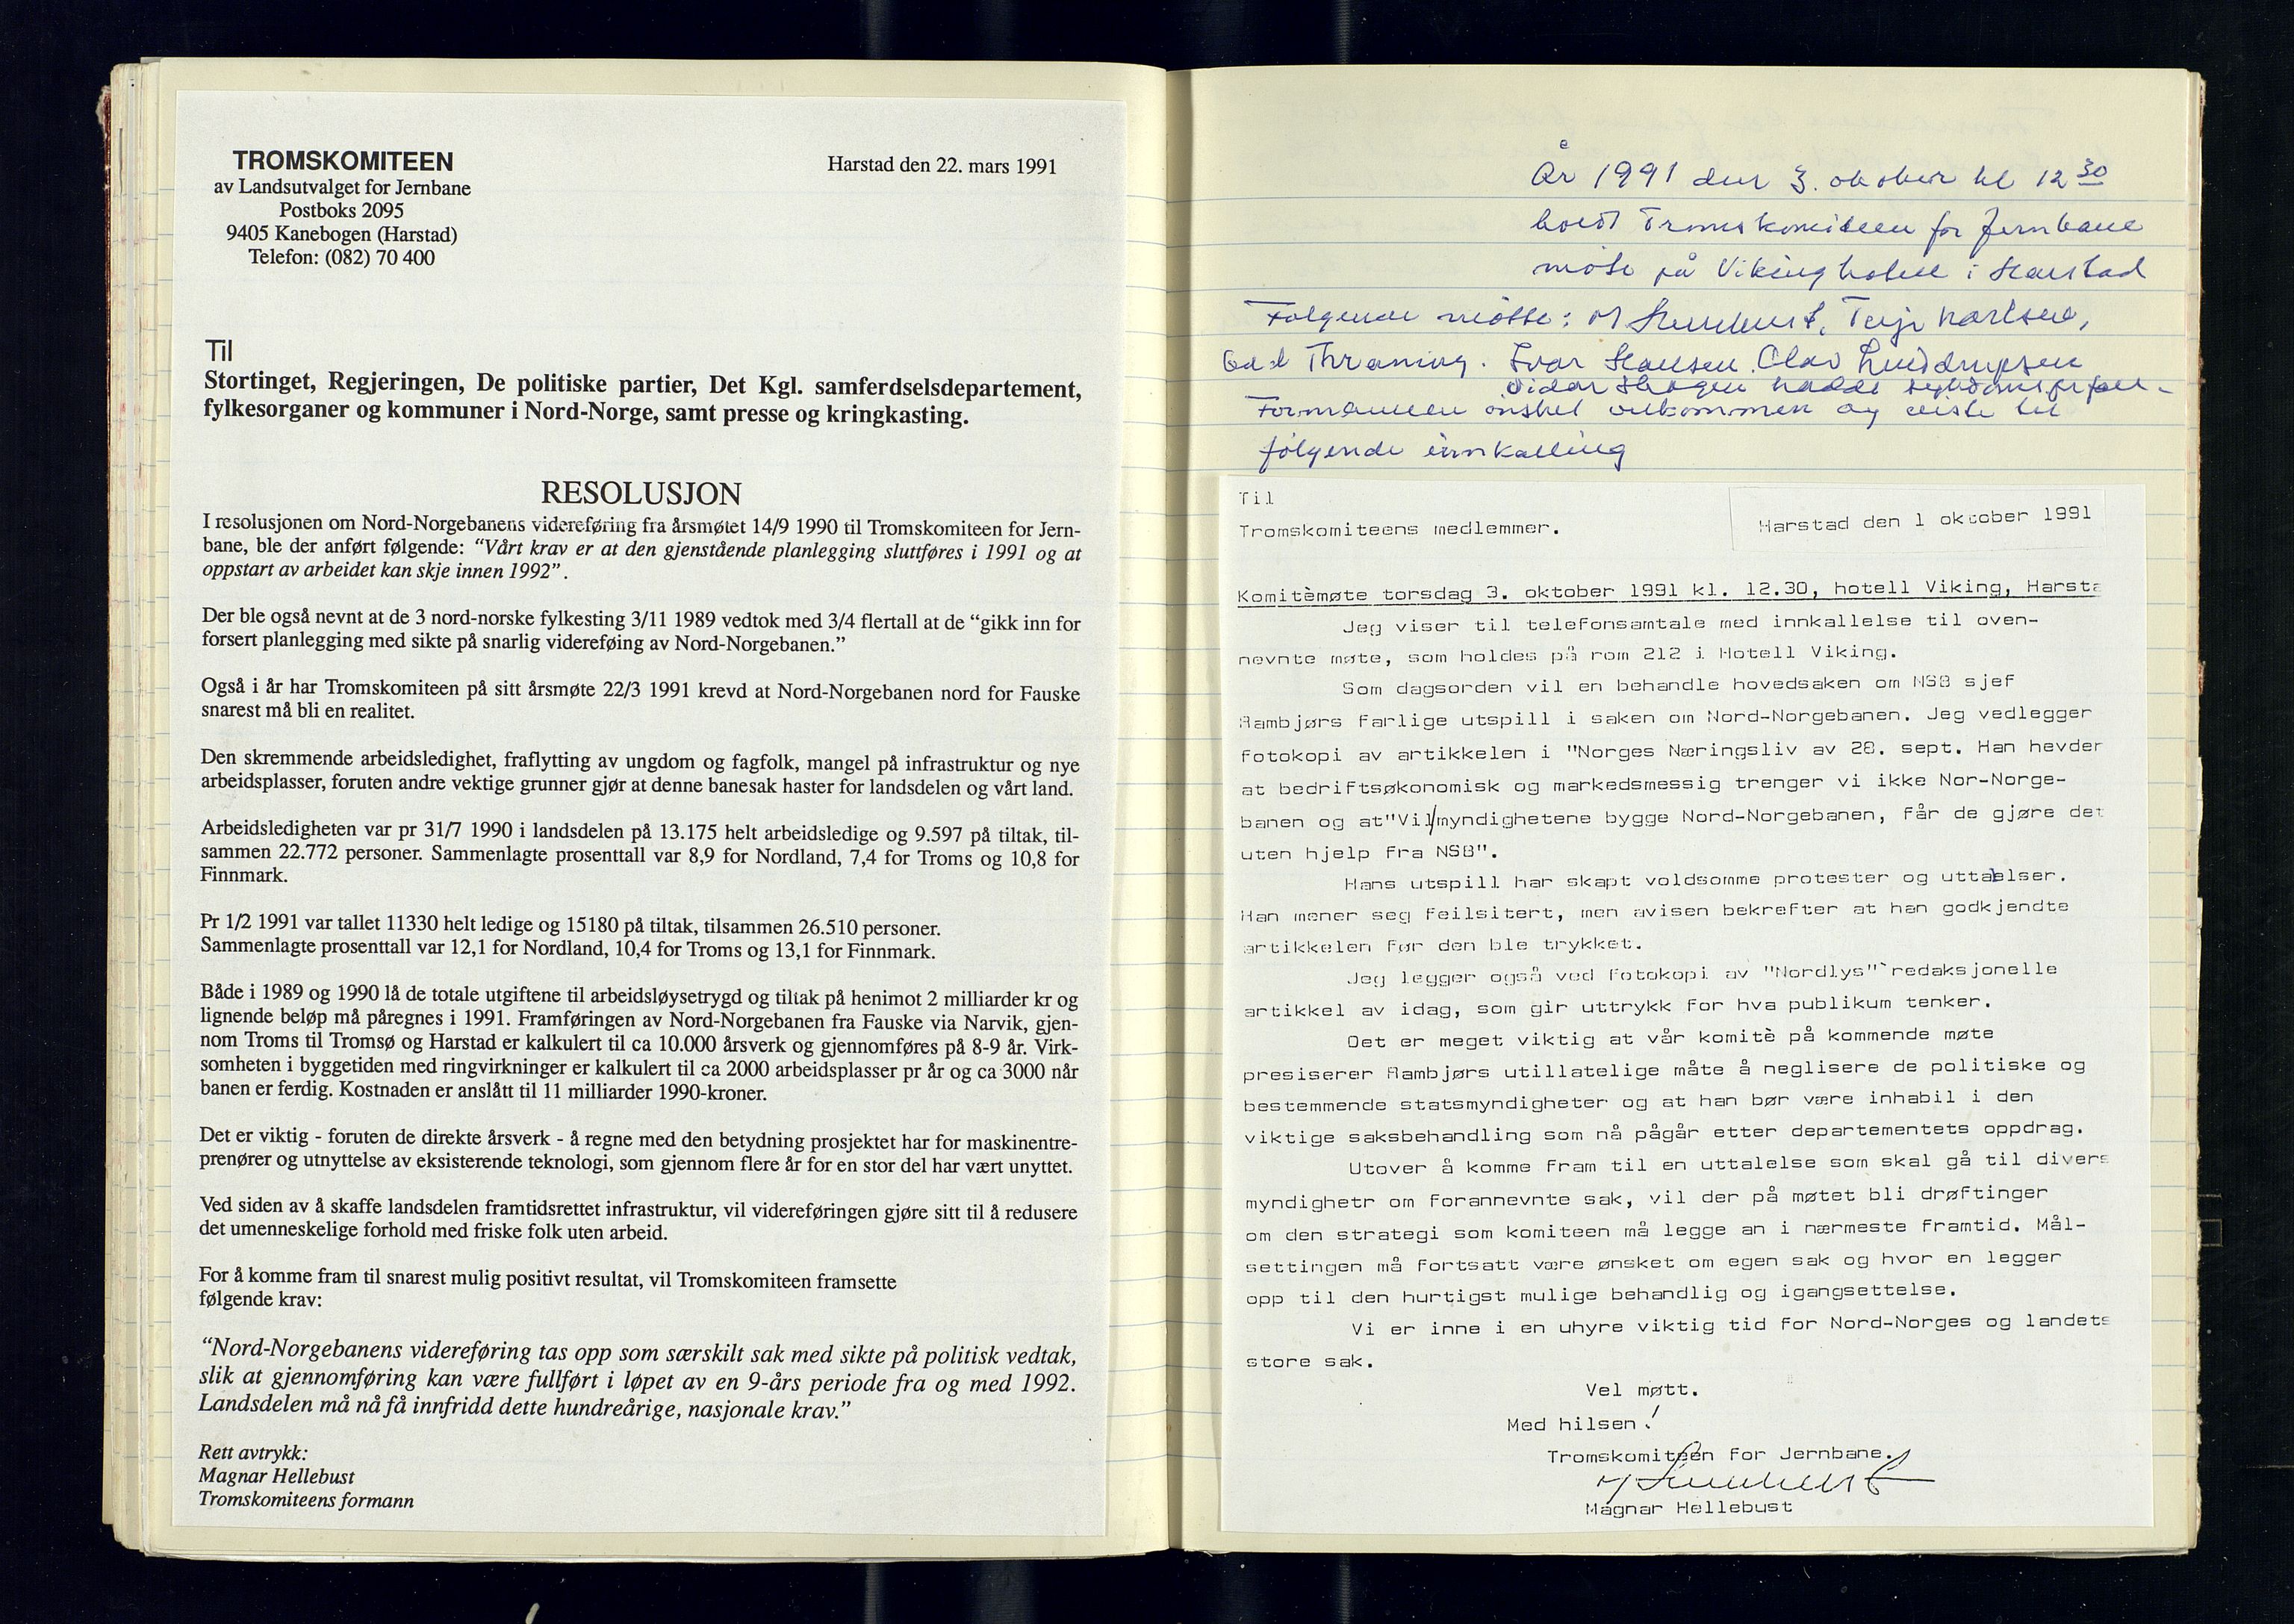 TROMSKOMITEEN
av Landsutvalget for Jernbane
Postboks 2095
9405 Kanebogen (Harstad)
Telefon: (082) 70 400
Harstad den 22. mars 1991
Til
Stortinget, Regjeringen, De politiske partier, Det Kgl. samferdselsdepartement,
fylkesorganer og kommuner i Nord-Norge, samt presse og kringkasting.
RESOLUSJON
I resolusjonen om Nord-Norgebanens videreføring fra årsmøtet 14/9 1990 til Tromskomiteen for Jern-
bane, ble der anført følgende: “Vårt krav er at den gjenstående planlegging sluttføres i 1991 og at
oppstart av arbeidet kan skje innen 1992”.
Der ble også nevnt at de 3 nord-norske fylkesting 3/11 1989 vedtok med 3/4 flertall at de “gikk inn for
forsert planlegging med sikte på snarlig videreføing av Nord-Norgebanen.”
Også i år har Tromskomiteen på sitt årsmøte 22/3 1991 krevd at Nord-Norgebanen nord for Fauske
snarest må bli en realitet.
Den skremmende arbeidsledighet, fraflytting av ungdom og fagfolk, mangel på infrastruktur og nye
arbeidsplasser, foruten andre vektige grunner gjør at denne banesak haster for landsdelen og vårt land.
Arbeidsledigheten var pr 31/7 1990 i landsdelen på 13.175 helt arbeidsledige og 9.597 på tiltak, til-
sammen 22.772 personer. Sammenlagte prosenttall var 8,9 for Nordland, 7,4 for Troms og 10,8 for
Finnmark.
Pr 1/2 1991 var tallet 11330 helt ledige og 15180 på tiltak, tilsammen 26.510 personer.
Sammenlagte prosenttall var 12,1 for Nordland, 10,4 for Troms og 13,1 for Finnmark.
Både i 1989 og 1990 lå de totale utgiftene til arbeidsløysetrygd og tiltak på henimot 2 milliarder kr og
lignende beløp må påregnes i 1991. Framføringen av Nord-Norgebanen fra Fauske via Narvik, gjen-
nom Troms til Tromsø og Harstad er kalkulert til ca 10.000 årsverk og gjennomføres på 8-9 år. Virk-
somheten i byggetiden med ringvirkninger er kalkulert til ca 2000 arbeidsplasser pr år og ca 3000 når
banen er ferdig. Kostnaden er anslått til 11 milliarder 1990-kroner.
Det er viktig - foruten de direkte årsverk - å regne med den betydning prosjektet har for maskinentre-
prenører og utnyttelse av eksisterende teknologi, som gjennom flere år for en stor del har vært unyttet.
Ved siden av å skaffe landsdelen framtidsrettet infrastruktur, vil videreføringen gjøre sitt til å redusere
det umenneskelige forhold med friske folk uten arbeid.
For å komme fram til snarest mulig positivt resultat, vil Tromskomiteen framsette
følgende krav:
“Nord-Norgebanens videreføring tas opp som særskilt sak med sikte på politisk vedtak,
slik at gjennomføring kan være fullført i løpet av en 9-års periode fra og med 1992.
Landsdelen må nå få innfridd dette hundreårige, nasjonale krav.”
Rett avtrykk:
Magnar Hellebust
Tromskomiteens formann
År 1991 den 3. oktober kl 12 30
holdt Tromskomiteen for Jernbane
møte på Viking hotell i Harstad
Følgende møtte: M Hellebust, Terje Karlsen,
Thraning. Ivar Hansen. Olav Lindrupsen
Vidar hadde sykdomsforfall
Formannen ønsket velkommen og viste til
følgende innkalling
Til
Tromskomiteens medlemmer.
Harstad den 1 oktober 1991
Komitèmøte torsdag 3. oktober 1991 kl. 12.30, hotell Viking, Harsta
Jeg viser til telefonsamtale med innkallelse til oven-
nevnte møte, som holdes på rom 212 i Hotell Viking.
Som dagsorden vil en behandle hovedsaken om NSB sjef
Rambjørs farlige utspill i saken om Nord-Norgebanen. Jeg vedlegger
fotokopi av artikkelen i "Norges Næringsliv av 28. sept. Han hevder
at bedriftsøkonomisk og markedsmessig trenger vi ikke Nor-Norge-
banen og at"Vil/myndighetene bygge Nord-Norgebanen, får de gjøre det
uten hjelp fra NSB".
Hans utspill har skapt voldsomme protester og uttaelser.
Han mener seg feilsitert, men avisen bekrefter at han godkjendte
artikkelen før den ble trykket.
Jeg legger også ved fotokopi av "Nordlys" redaksjonelle
artikkel av idag, som gir uttrykk for hva publikum tenker.
Det er meget viktig at vår komitè på kommende møte
presiserer Rambjørs utillatelige måte å neglisere de politiske og
bestemmende statsmyndigheter og at han bør være inhabil i den
viktige saksbehandling som nå pågår etter departementets oppdrag.
Utover å komme fram til en uttalelse som skal gå til divers
myndighetr om forannevnte sak, vil der på møtet bli drøftinger
om den strategi som komiteen må legge an i nærmeste framtid. Mål-
settingen må fortsatt være ønsket om egen sak og hvor en legger
opp til den hurtigst mulige behandlig og igangsettelse.
Vi er inne i en uhyre viktig tid for Nord-Norges og landets
store sak.
Vel møtt.
Med hilsen!
Tromskomiteen for Jernbane.
M Hellebust
Magnar Hellebust